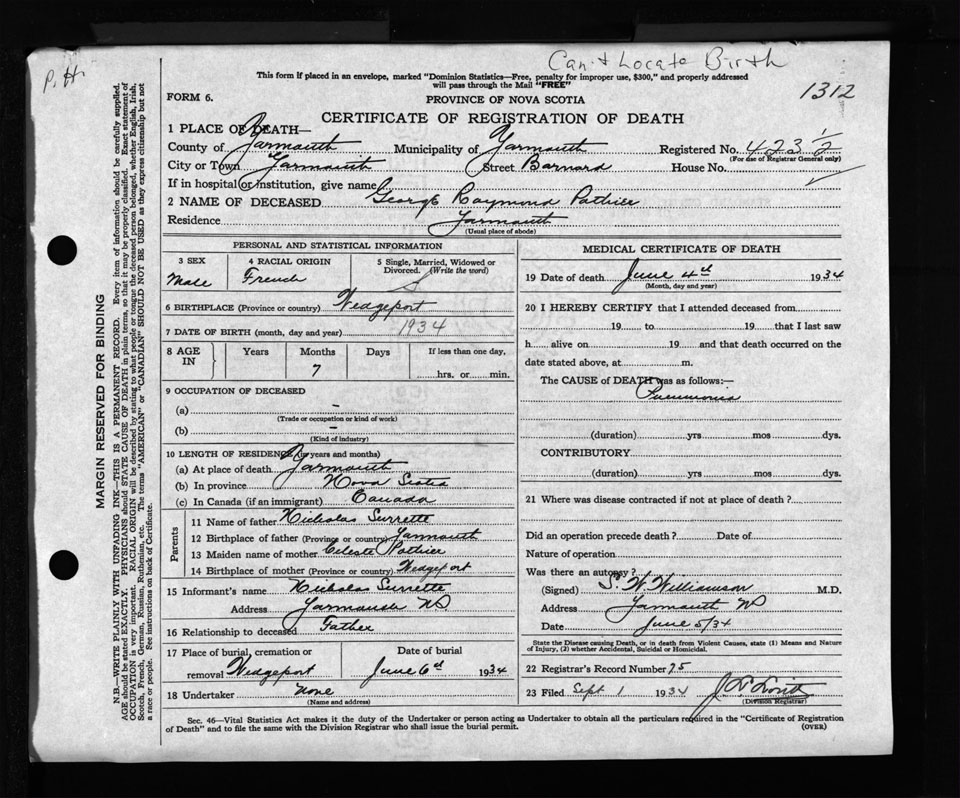 Can't Locate Birth
P.H.
1312
This form if placed in an envelope, marked "Dominion Statistics—Free, penalty for improper use, $300," and properly addressed
will pass through the Mail "FREE"
FORM 6.
PROVINCE OF NOVA SCOTIA
CERTIFICATE OF REGISTRATION OF DEATH
1 PLACE OF DEATH—
County of Yarmouth Municipality of Yarmouth Registered No. 423 1/2
(For use of Registrar General only)
City or Town Yarmouth Street Barnard House No.
If in hospital or institution, give name
2 NAME OF DECEASED George Raymond Pothier
Residence Yarmouth
(Usual place of abode)
PERSONAL AND STATISTICAL INFORMATION
3 SEX Male
4 RACIAL ORIGIN French
5 Single, Married, Widowed or Divorced. (Write the word) S
6 BIRTHPLACE (Province or country) Wedgeport
7 DATE OF BIRTH (month, day and year) 1934
8 AGE IN Years Months Days If less than one day,
7 hrs. or min.
9 OCCUPATION OF DECEASED
(a) –
(Trade or occupation or kind of work)
(b) –
(Kind of industry)
10 LENGTH OF RESIDENCE (in years and months)
(a) At place of death Yarmouth
(b) In province Nova Scotia
(c) In Canada (if an immigrant) Canada
Parents
11 Name of father Nicholas Surrette
12 Birthplace of father (Province or country) Yarmouth
13 Maiden name of mother Celeste Pothier
14 Birthplace of mother (Province or country) Wedgeport
15 Informant's name Nicholas Surrette
Address Yarmouth NS
16 Relationship to deceased Father
17 Place of burial, cremation or Date of burial
removal Wedgeport June 6th 1934
18 Undertaker None
(Name and address)
MEDICAL CERTIFICATE OF DEATH
19 Date of death June 4th 1934
(Month, day and year)
20 I HEREBY CERTIFY that I attended deceased from
19 to 19 that I last saw
h alive on 19 and that death occurred on the
date stated above, at m.
The CAUSE of DEATH was as follows:—
Pneumonia
(duration) yrs mos dys.
CONTRIBUTORY
(duration) yrs mos dys.
21 Where was disease contracted if not at place of death?
Did an operation precede death? Date of
Nature of operation
Was there an autopsy?
(Signed) S. W. Williamson M.D.
Address Yarmouth NS
Date June 5/34
State the Disease causing Death, or in death from Violent Causes, state (1) Means and Nature
of Injury, (2) whether Accidental, Suicidal or Homicidal.
22 Registrar's Record Number 75
23 Filed Sept 1 1934
(Division Registrar)
Sec. 46—Vital Statistics Act makes it the duty of the Undertaker or person acting as Undertaker to obtain all the particulars required in the "Certificate of Registration
of Death" and to file the same with the Division Registrar who shall issue the burial permit. (OVER)
MARGIN RESERVED FOR BINDING
N.B.—WRITE PLAINLY WITH UNFADING INK—THIS IS A PERMANENT RECORD. Every item of information should be carefully supplied.
AGE should be stated EXACTLY. PHYSICIANS should STATE CAUSE OF DEATH in plain terms, so that it may be properly classified. Exact statement of
OCCUPATION is very important. RACIAL ORIGIN will be described by stating to what people or tongue the deceased person belonged, whether English, Irish,
Scotch, French, German, Russian, Ruthenian, etc. The terms "AMERICAN" or "CANADIAN" SHOULD NOT BE USED as they express citizenship but not
a race or people. See instructions on back of Certificate.